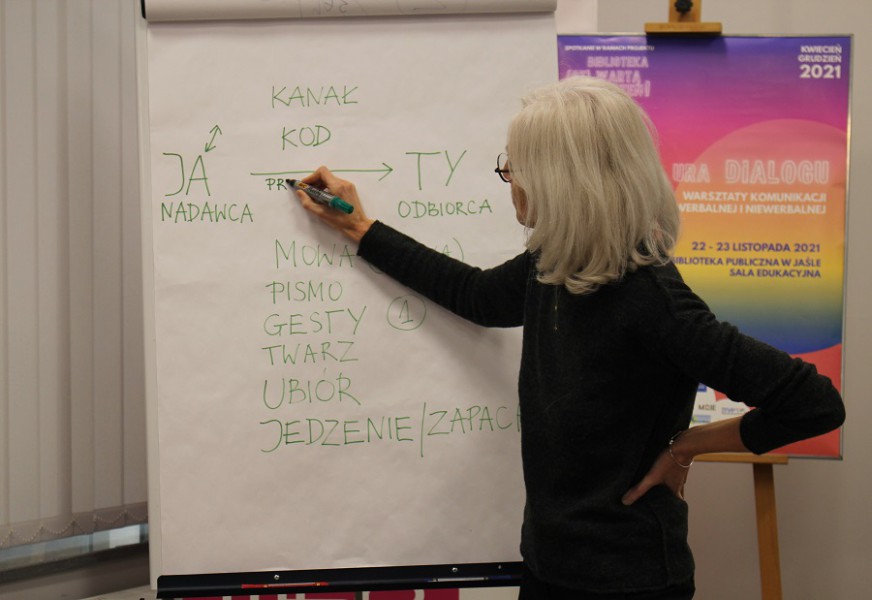 KANAŁ
KOD
JA TY
PR
NADAWCA ODBIORCA
MOWA
PISMO
GESTY 1
TWARZ
UBIÓR
JEDZENIE/ZAPACH
SPOTKANIE W RAMACH PROJEKTU
BIBLIOTEKA
KWIECIEŃ
GRUDZIEŃ
2021
DIALOGU
WARSZTATY KOMUNIKACJI
WERBALNEJ I NIEWERBALNEJ
22 - 23 LISTOPADA 2021
BIBLIOTEKA PUBLICZNA W JAŚLE
SALA EDUKACYJNA